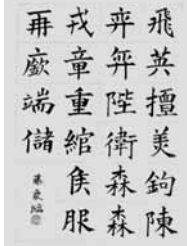 飛英擅美鉤陳
弈弈陛衛森森
戎章重綰侯服
再廞端儲